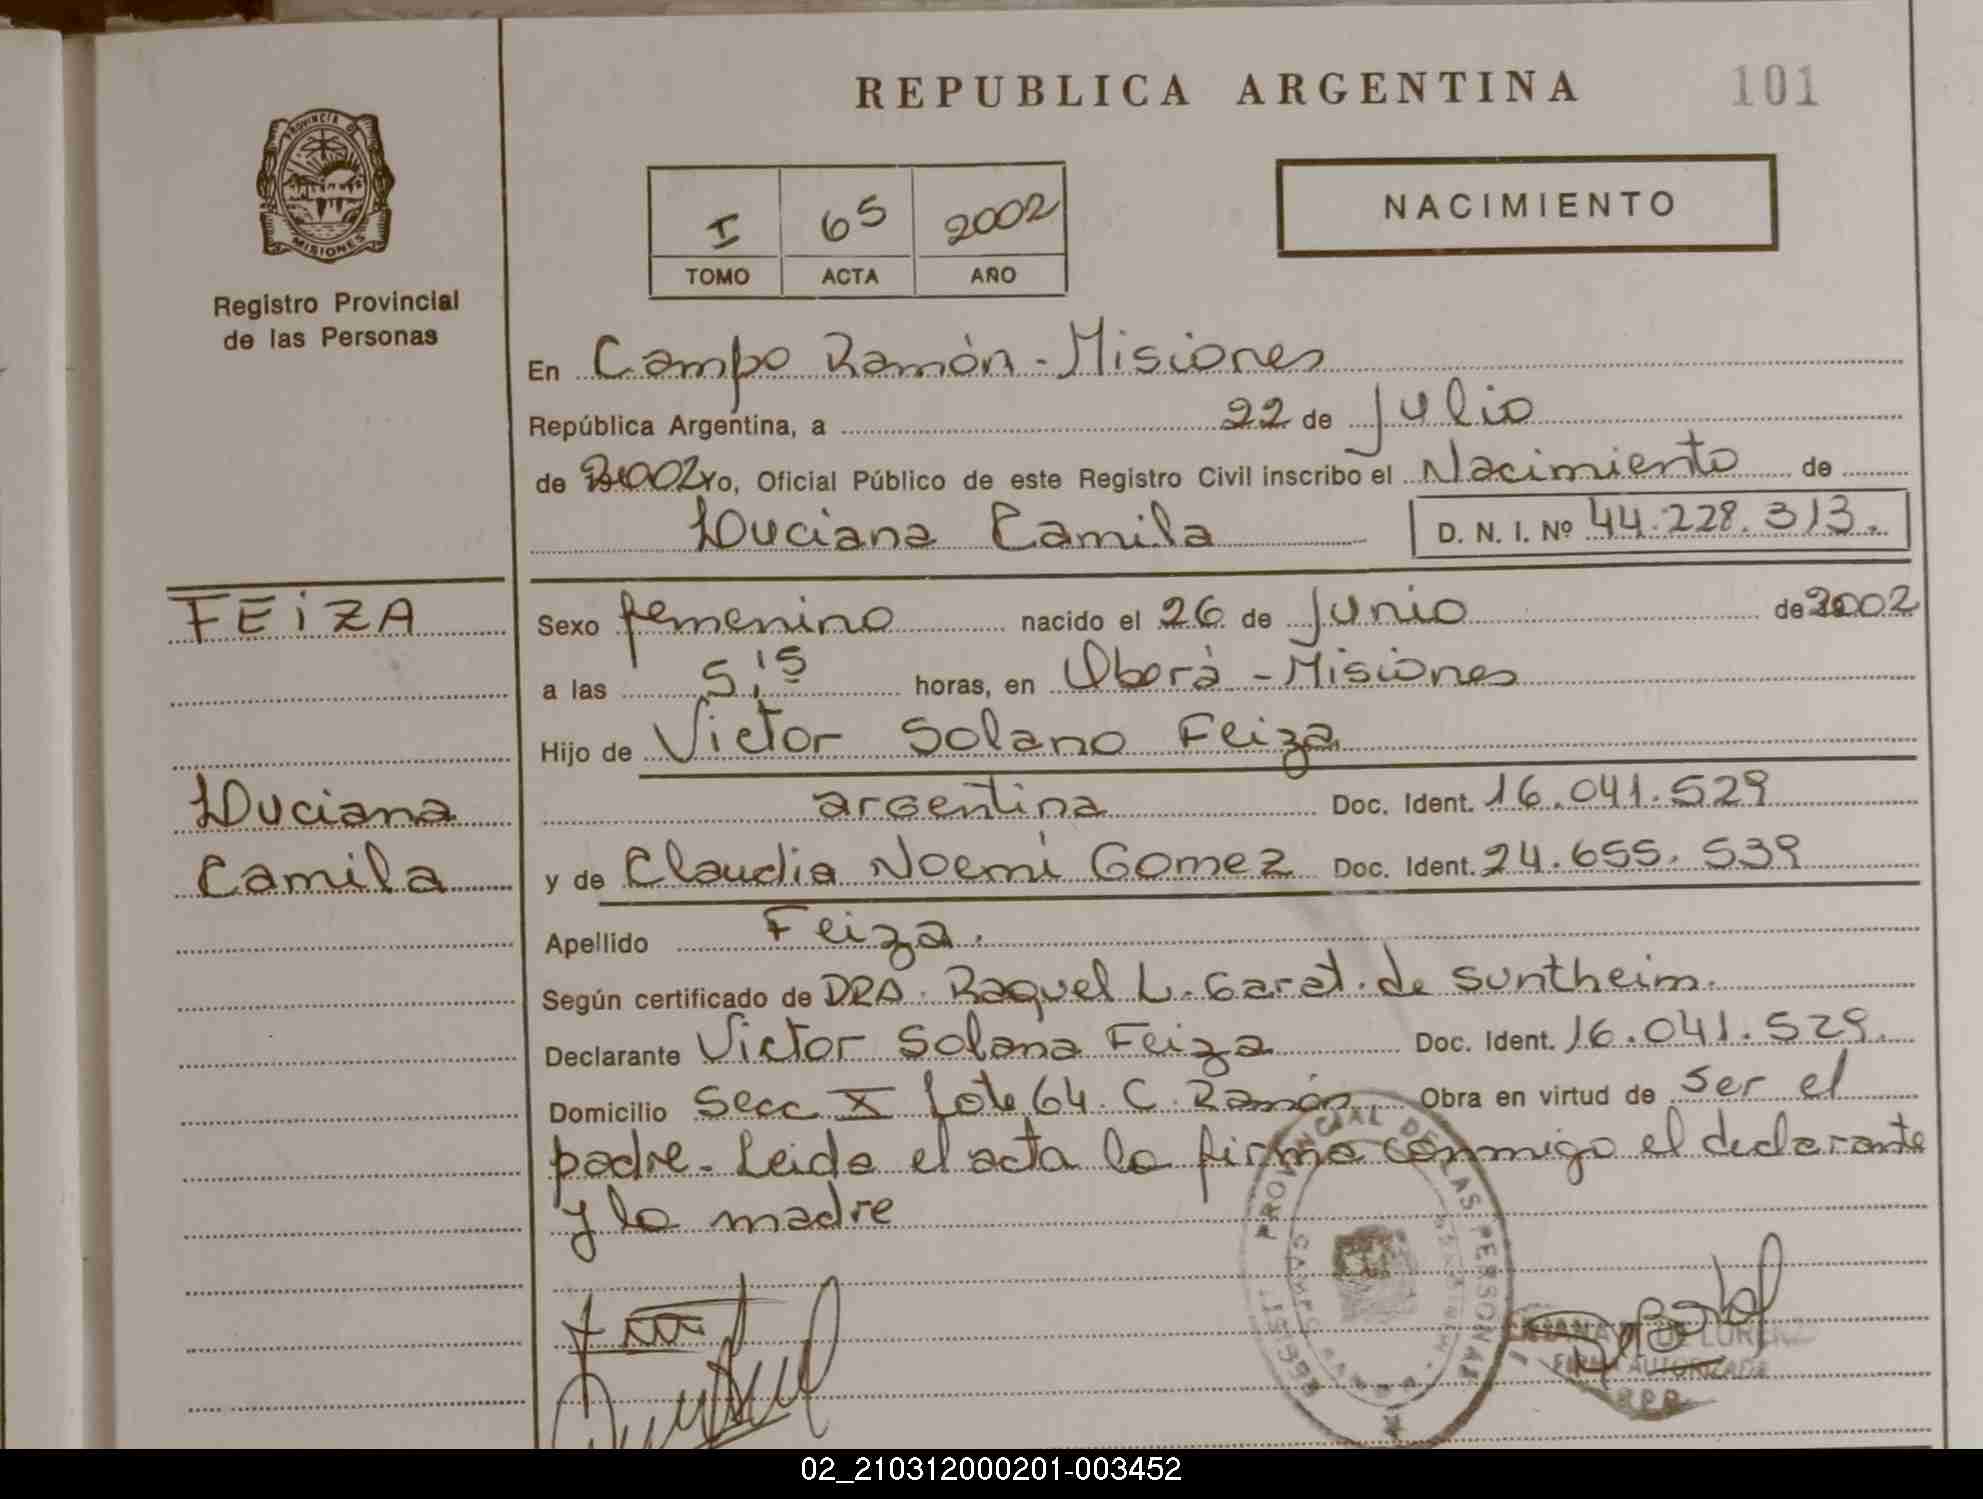 REPUBLICA ARGENTINA 101
PROVINCIA DE
MISIONES
Registro Provincial
de las Personas
I 65 2002
TOMO ACTA AÑO
NACIMIENTO
En Campo Ramón - Misiones
República Argentina, a 22 de Julio
de 2002 Yo, Oficial Público de este Registro Civil inscribo el Nacimiento de
Luciana Camila D. N. I. Nº 44.228.313.
FEiZA
Sexo femenino nacido el 26 de Junio de 2002
a las 5,15 horas, en Oberá - Misiones
Hijo de Victor Solano Feiza
Luciana
argentina Doc. Ident. 16.041.529
Camila
y de Claudia Noemí Gomez Doc. Ident. 24.655.539
Apellido Feiza.
Según certificado de DRA. Raquel L. Garat. de Suntheim.
Declarante Victor Solana Feiza Doc. Ident. 16.041.529.
Domicilio Secc X Lote 64. C. Ramón Obra en virtud de ser el
padre. Leida el acta la firma conmigo el declarante
y la madre
PROVINCIAL DE LAS PERSONAS
FIRMA AUTORIZADA
R.P.P.
02_210312000201-003452